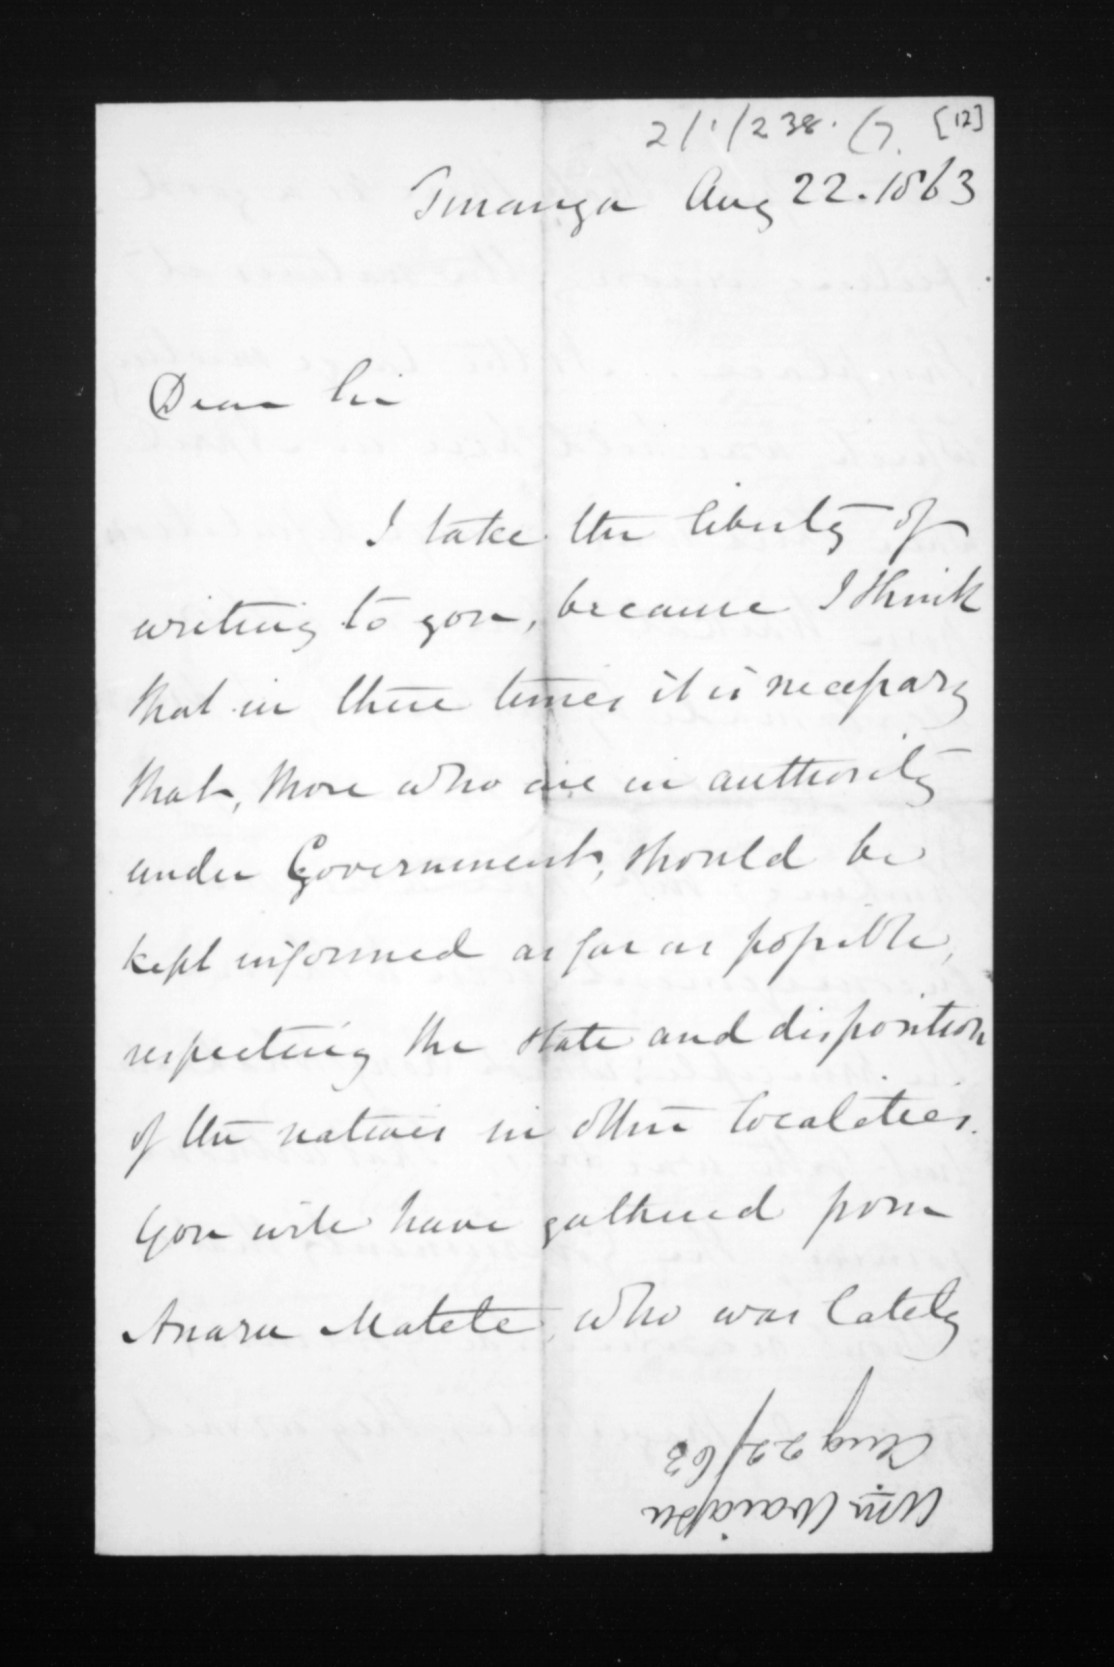 2/1/238. (7. [12]
Turanga Aug 22. 1863
Dear Sir
I take the liberty of
writing to you, because I think
that in these times it is necessary
that, those who are in authority
under Government, should be
kept informed as far as possible,
respecting the state and disposition
of the natives in other localities.
You will have gathered from
Anaru Matete, who was lately
Aug 22/63